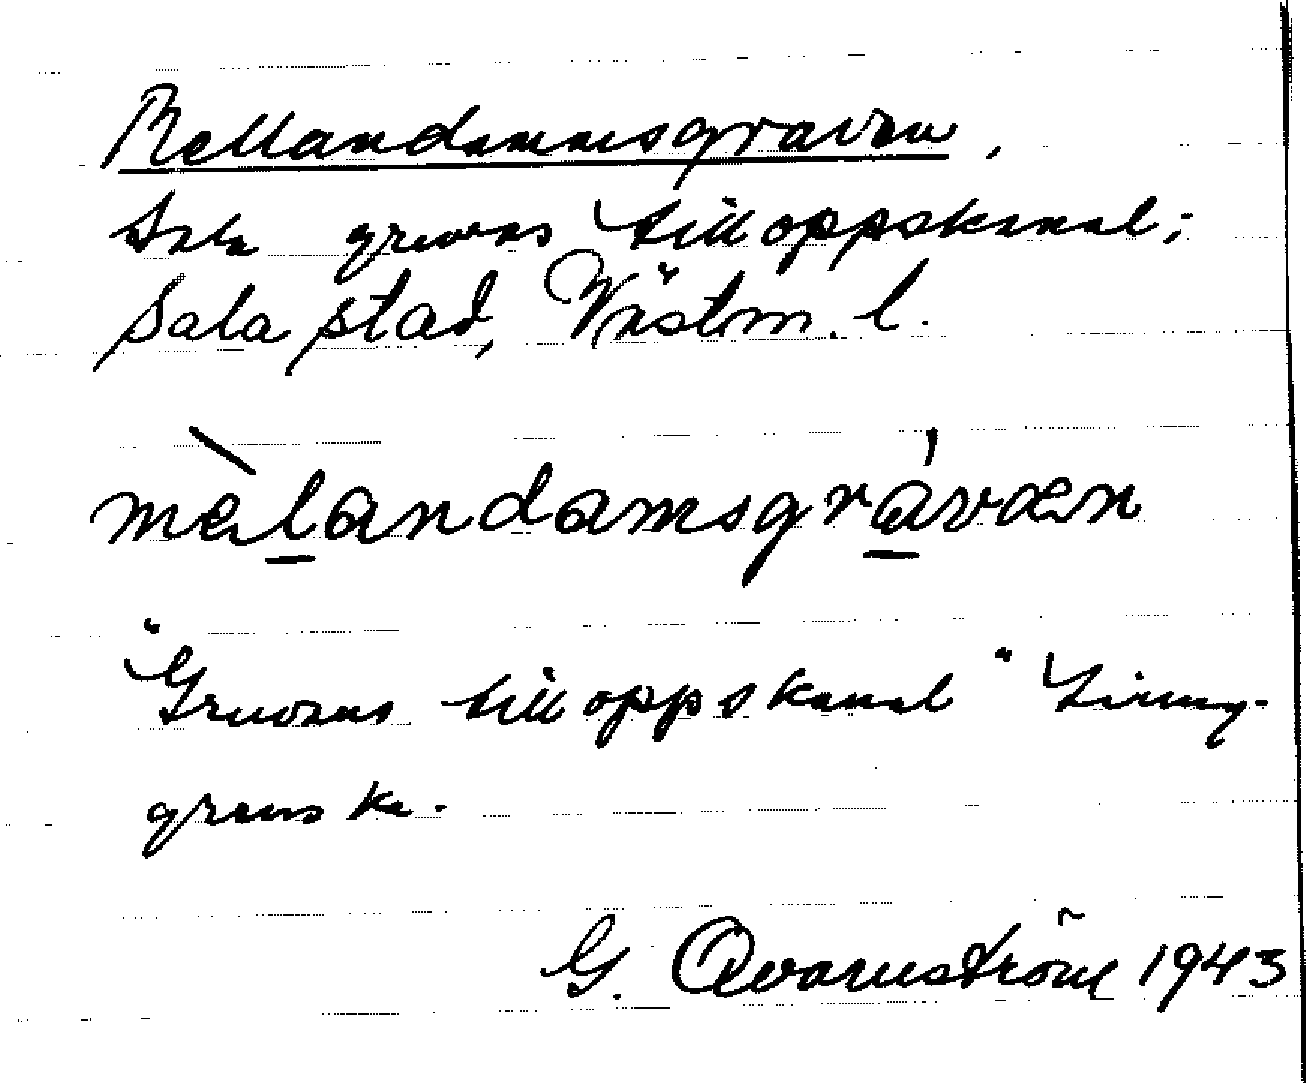 Mellandammsgraven,
Sala gruvas tilloppskanal;
Sala stad, Västm. l.
mèlandamsgrávæn
"Gruvans tilloppskanal"
G. Qvarnström 1943